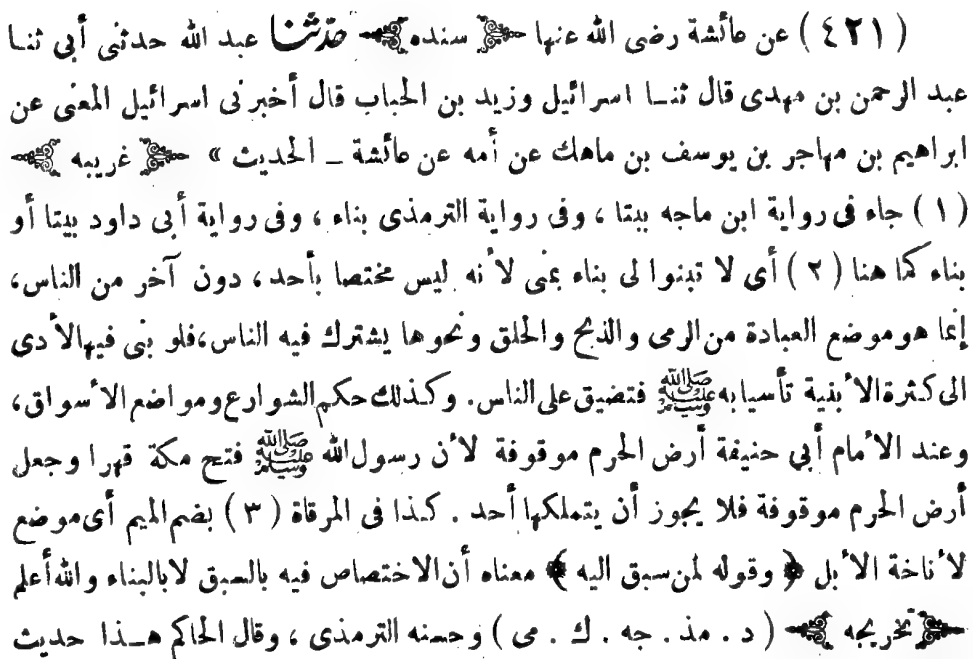 ( ٤٢١ ) عن عائشة رضى الله عنها ﴿ سنده ﴾ حدثنا عبد الله حدثنى أبى ثنا
عبد الرحمن بن مهدى قال ثنا اسرائيل وزيد بن الحباب قال أخبرنى اسرائيل المعنى عن
ابراهيم بن مهاجر بن يوسف بن ماهك عن أمه عن عائشة ـ الحديث » ﴿ غريبه ﴾
( ١ ) جاء فى رواية ابن ماجه بيتا ، وفى رواية الترمذى بناء ، وفى رواية أبى داود بيتا أو
بناء كما هنا ( ٢ ) أى لا تبنوا لى بناء بمنى لأنه ليس مختصا بأحد ، دون آخر من الناس،
إنما هو موضع العبادة من الرمى والذبح والحلق ونحوها يشترك فيه الناس،فلو بنى فيها لأدى
الى كثرة الأبنية تأسيا به ﷺ فتضيق على الناس. وكذلك حكم الشوارع ومواضع الأسواق،
وعند الأمام أبي حنيفة أرض الحرم موقوفة لأن رسول الله ﷺ فتح مكة قهرا وجعل
أرض الحرم موقوفة فلا يجوز أن يتملكها أحد . كذا فى المرقاة ( ٣ ) بضم الميم أى موضع
لأناخة الأبل ﴿ وقوله لمن سبق اليه ﴾ معناه أن الاختصاص فيه بالسبق لا بالبناء والله أعلم
﴿ تخريجه ﴾ ( د . مذ . جه . ك . مى ) وحسنه الترمذى ، وقال الحاكم هـذا حديث